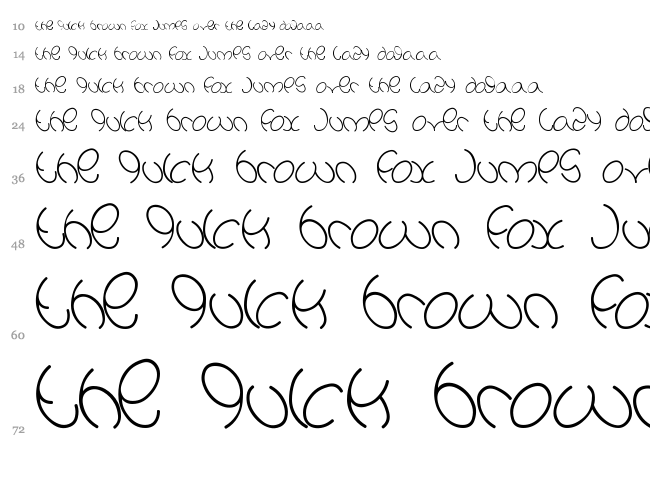 10 the quick brown fox jumps over the lazy dogaaa
14 the quick brown fox jumps over the lazy dogaaa
18 the quick brown fox jumps over the lazy dogaaa
24 the quick brown fox jumps over the lazy dog
36 the quick brown fox jumps ov
48 the quick brown fox ju
60 the quick brown fo
72 the quick brow